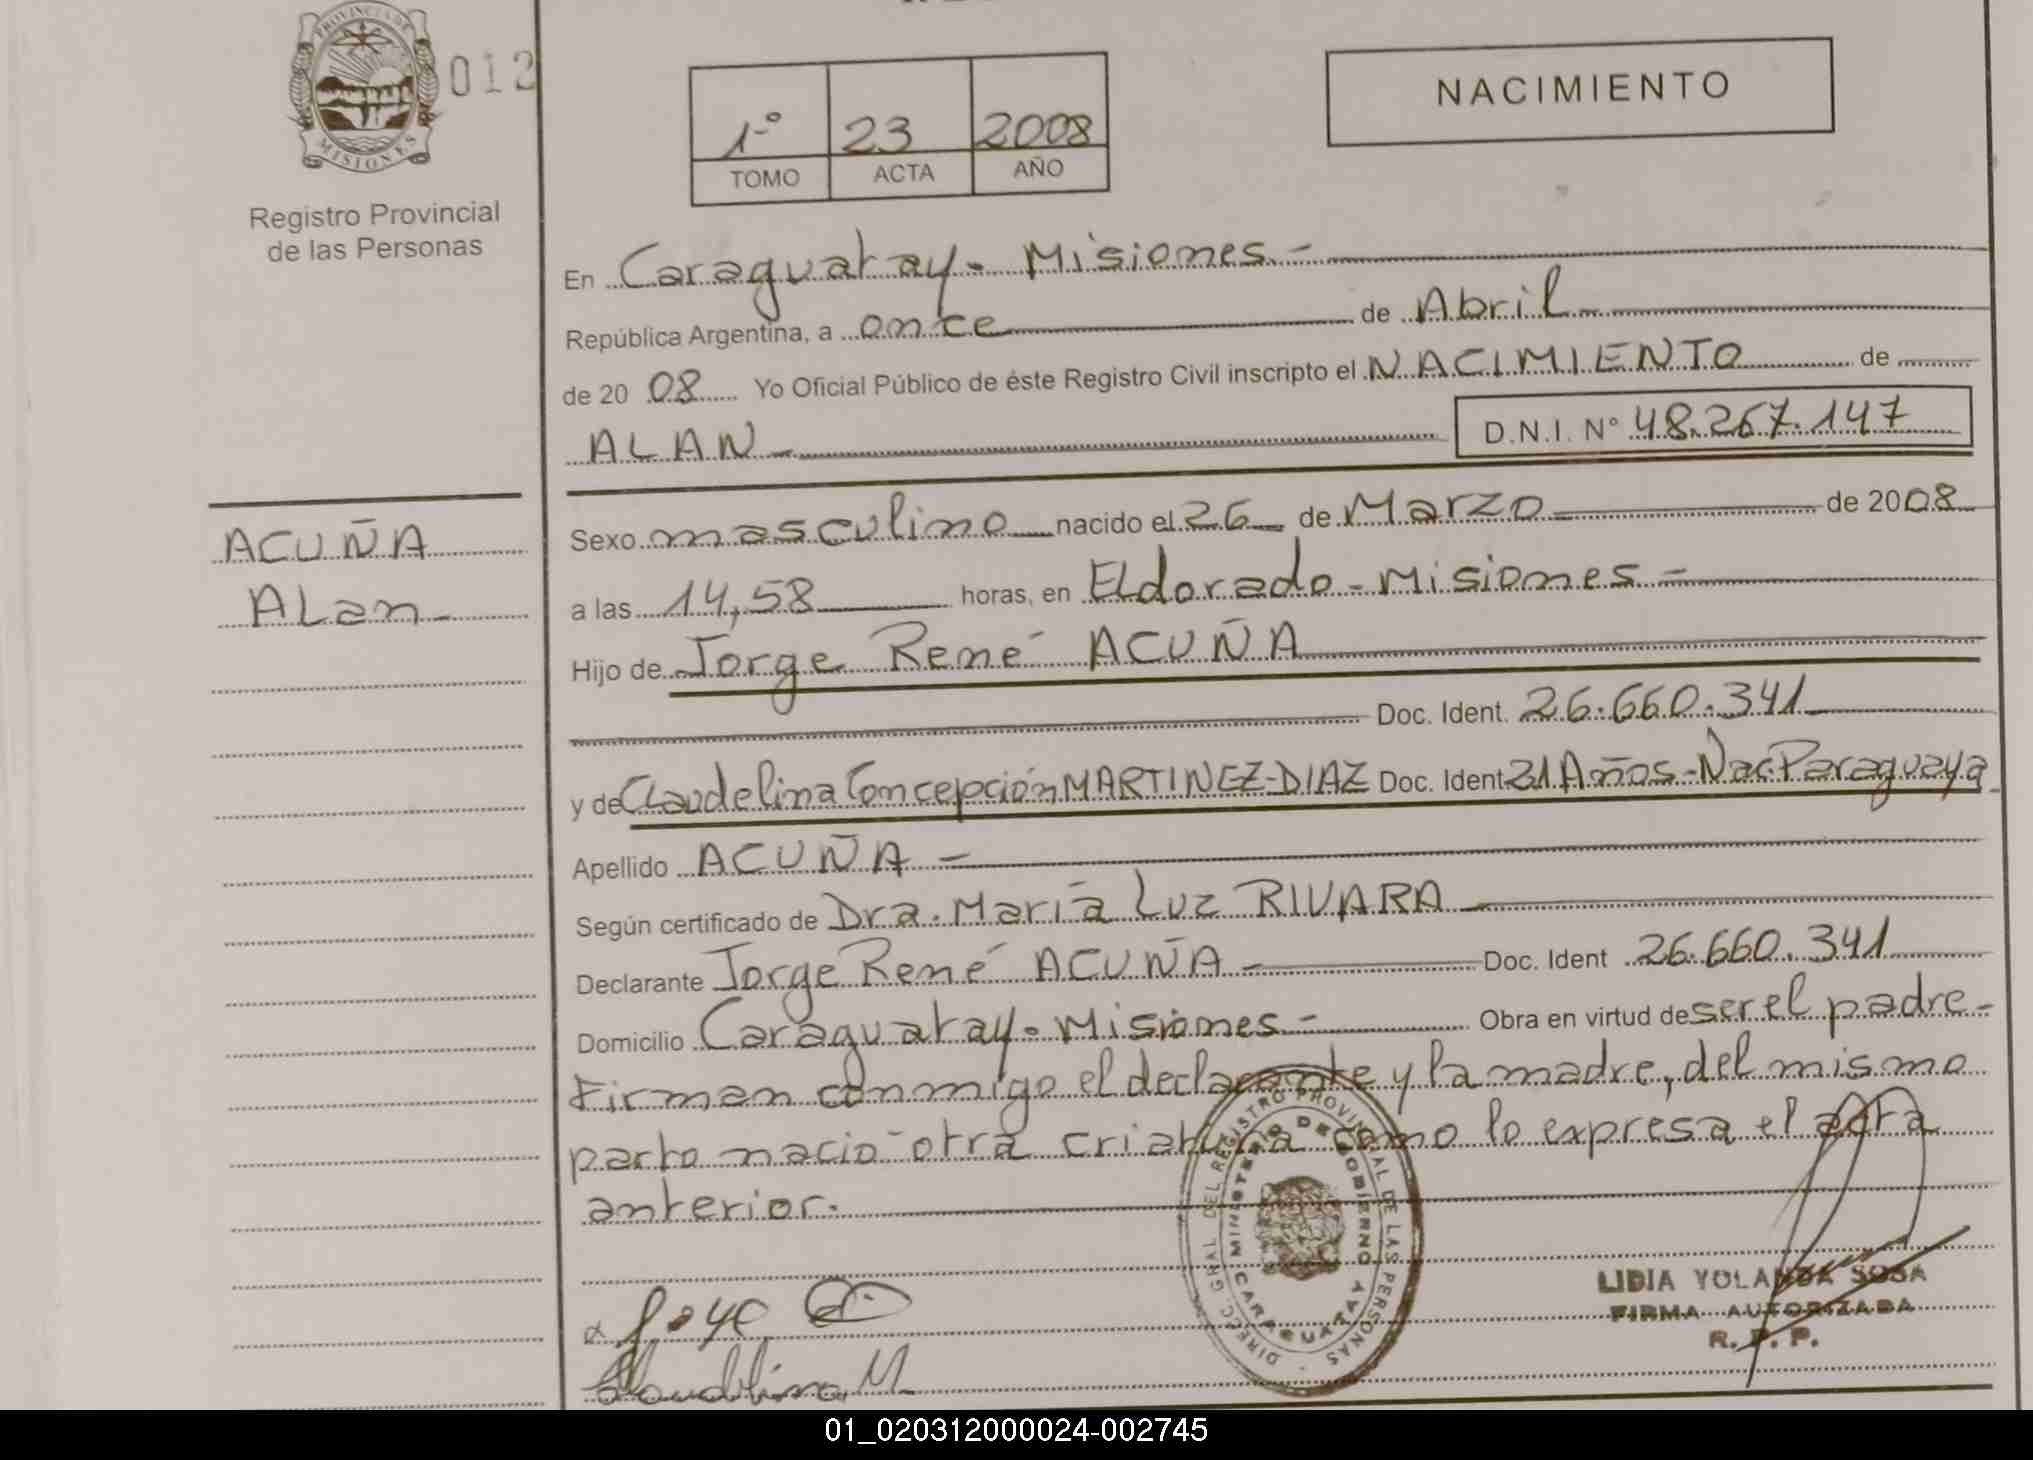 PROVINCIA DE
MISIONES
012
Registro Provincial
de las Personas
1º 23 2008
TOMO ACTA AÑO
NACIMIENTO
En Caraguatay - Misiones -
República Argentina, a once de Abril
de 2008 Yo Oficial Público de éste Registro Civil inscripto el NACIMIENTO de
ALAN - D.N.I. N° 48.267.147
ACUÑA
ALan -
Sexo masculino nacido el 26 de Marzo de 2008
a las 14,58 horas, en ELdorado - Misiones -
Hijo de Jorge René ACUÑA
Doc. Ident. 26.660.341
y de Claudelina Concepción MARTINEZ-DIAZ Doc. Ident 31 Años - Nac. Paraguaya
Apellido ACUÑA -
Según certificado de Dra. María Luz RIVARA
Declarante Jorge René ACUÑA - Doc. Ident 26.660.341
Domicilio Caraguatay - Misiones - Obra en virtud de ser el padre -
Firman conmigo el declarante y la madre, del mismo
parto nació otra criatura como lo expresa el acta
anterior.
DIREC. GRAL. DEL REGISTRO PROVINCIAL DE LAS PERSONAS
MINISTERIO DE GOBIERNO
CARAGUATAY
LIDIA YOLANDA SOSA
FIRMA AUTORIZADA
R. P. P.
Claudelina M
01_020312000024-002745